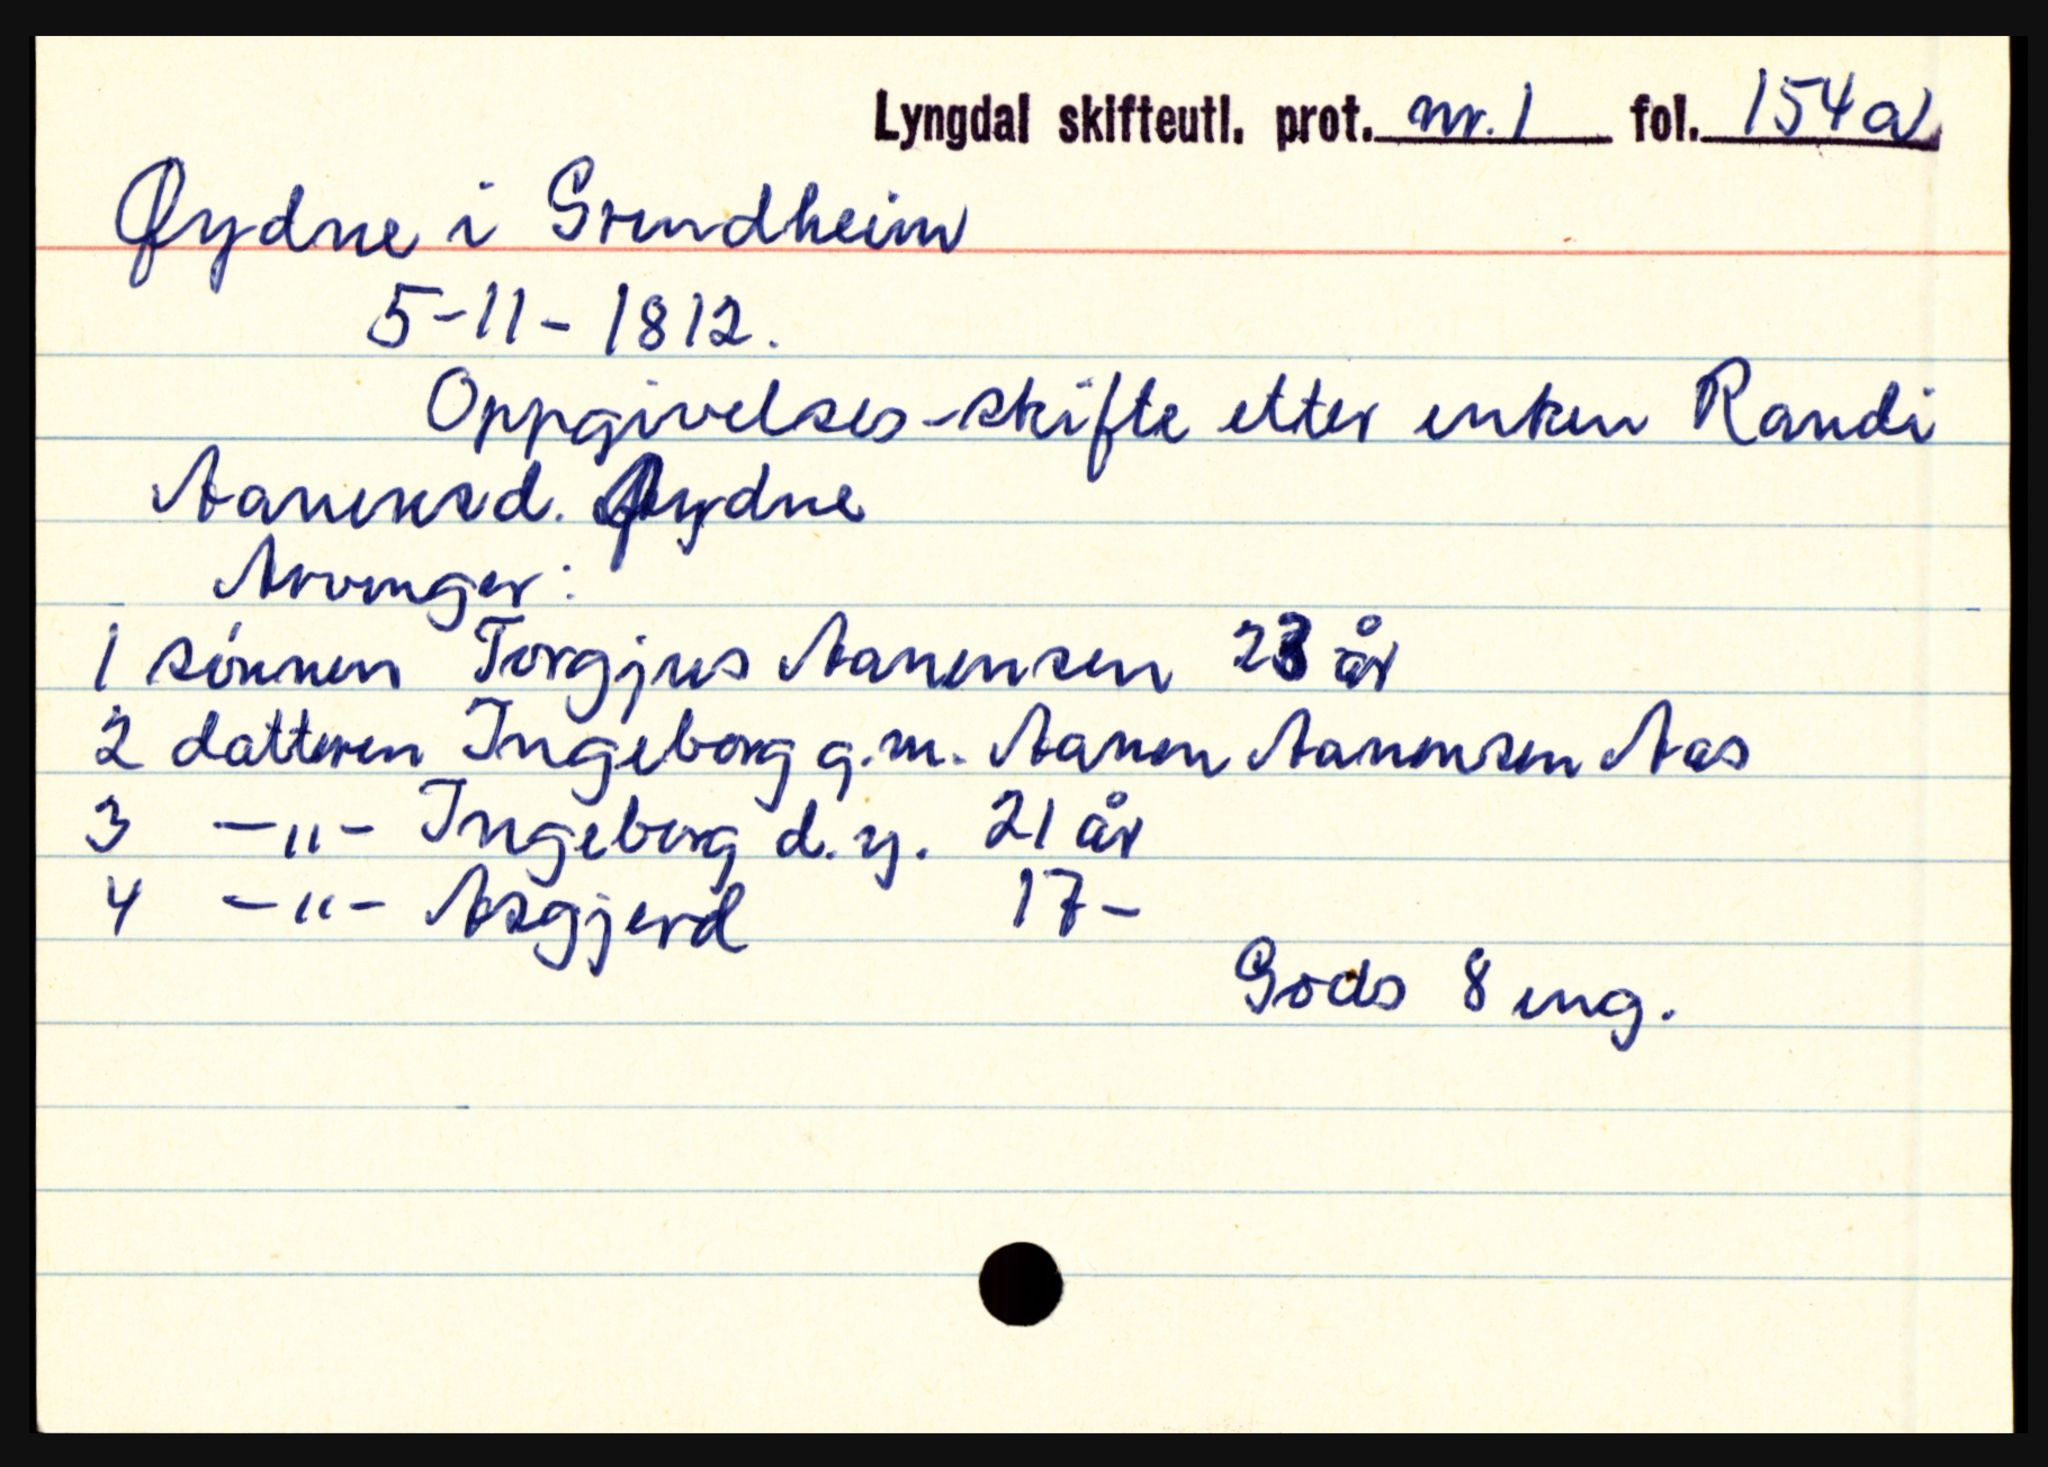 Lyngdal skifteutl. prot. nr. 1 fol. 154a
Øydne i Grindheim
5-11-1812.
Oppgivelses-skifte etter enken Randi
Aanensd. Øydne
Arvinger:
1 sönnen Torgjus Aanensen 23 år
2 datteren Ingeborg g.m. Aanen Aanensen Aas
3 -"- Ingeborg d.y. 21 år
4 -"- Asgjerd 17-
Gods 8 eng.